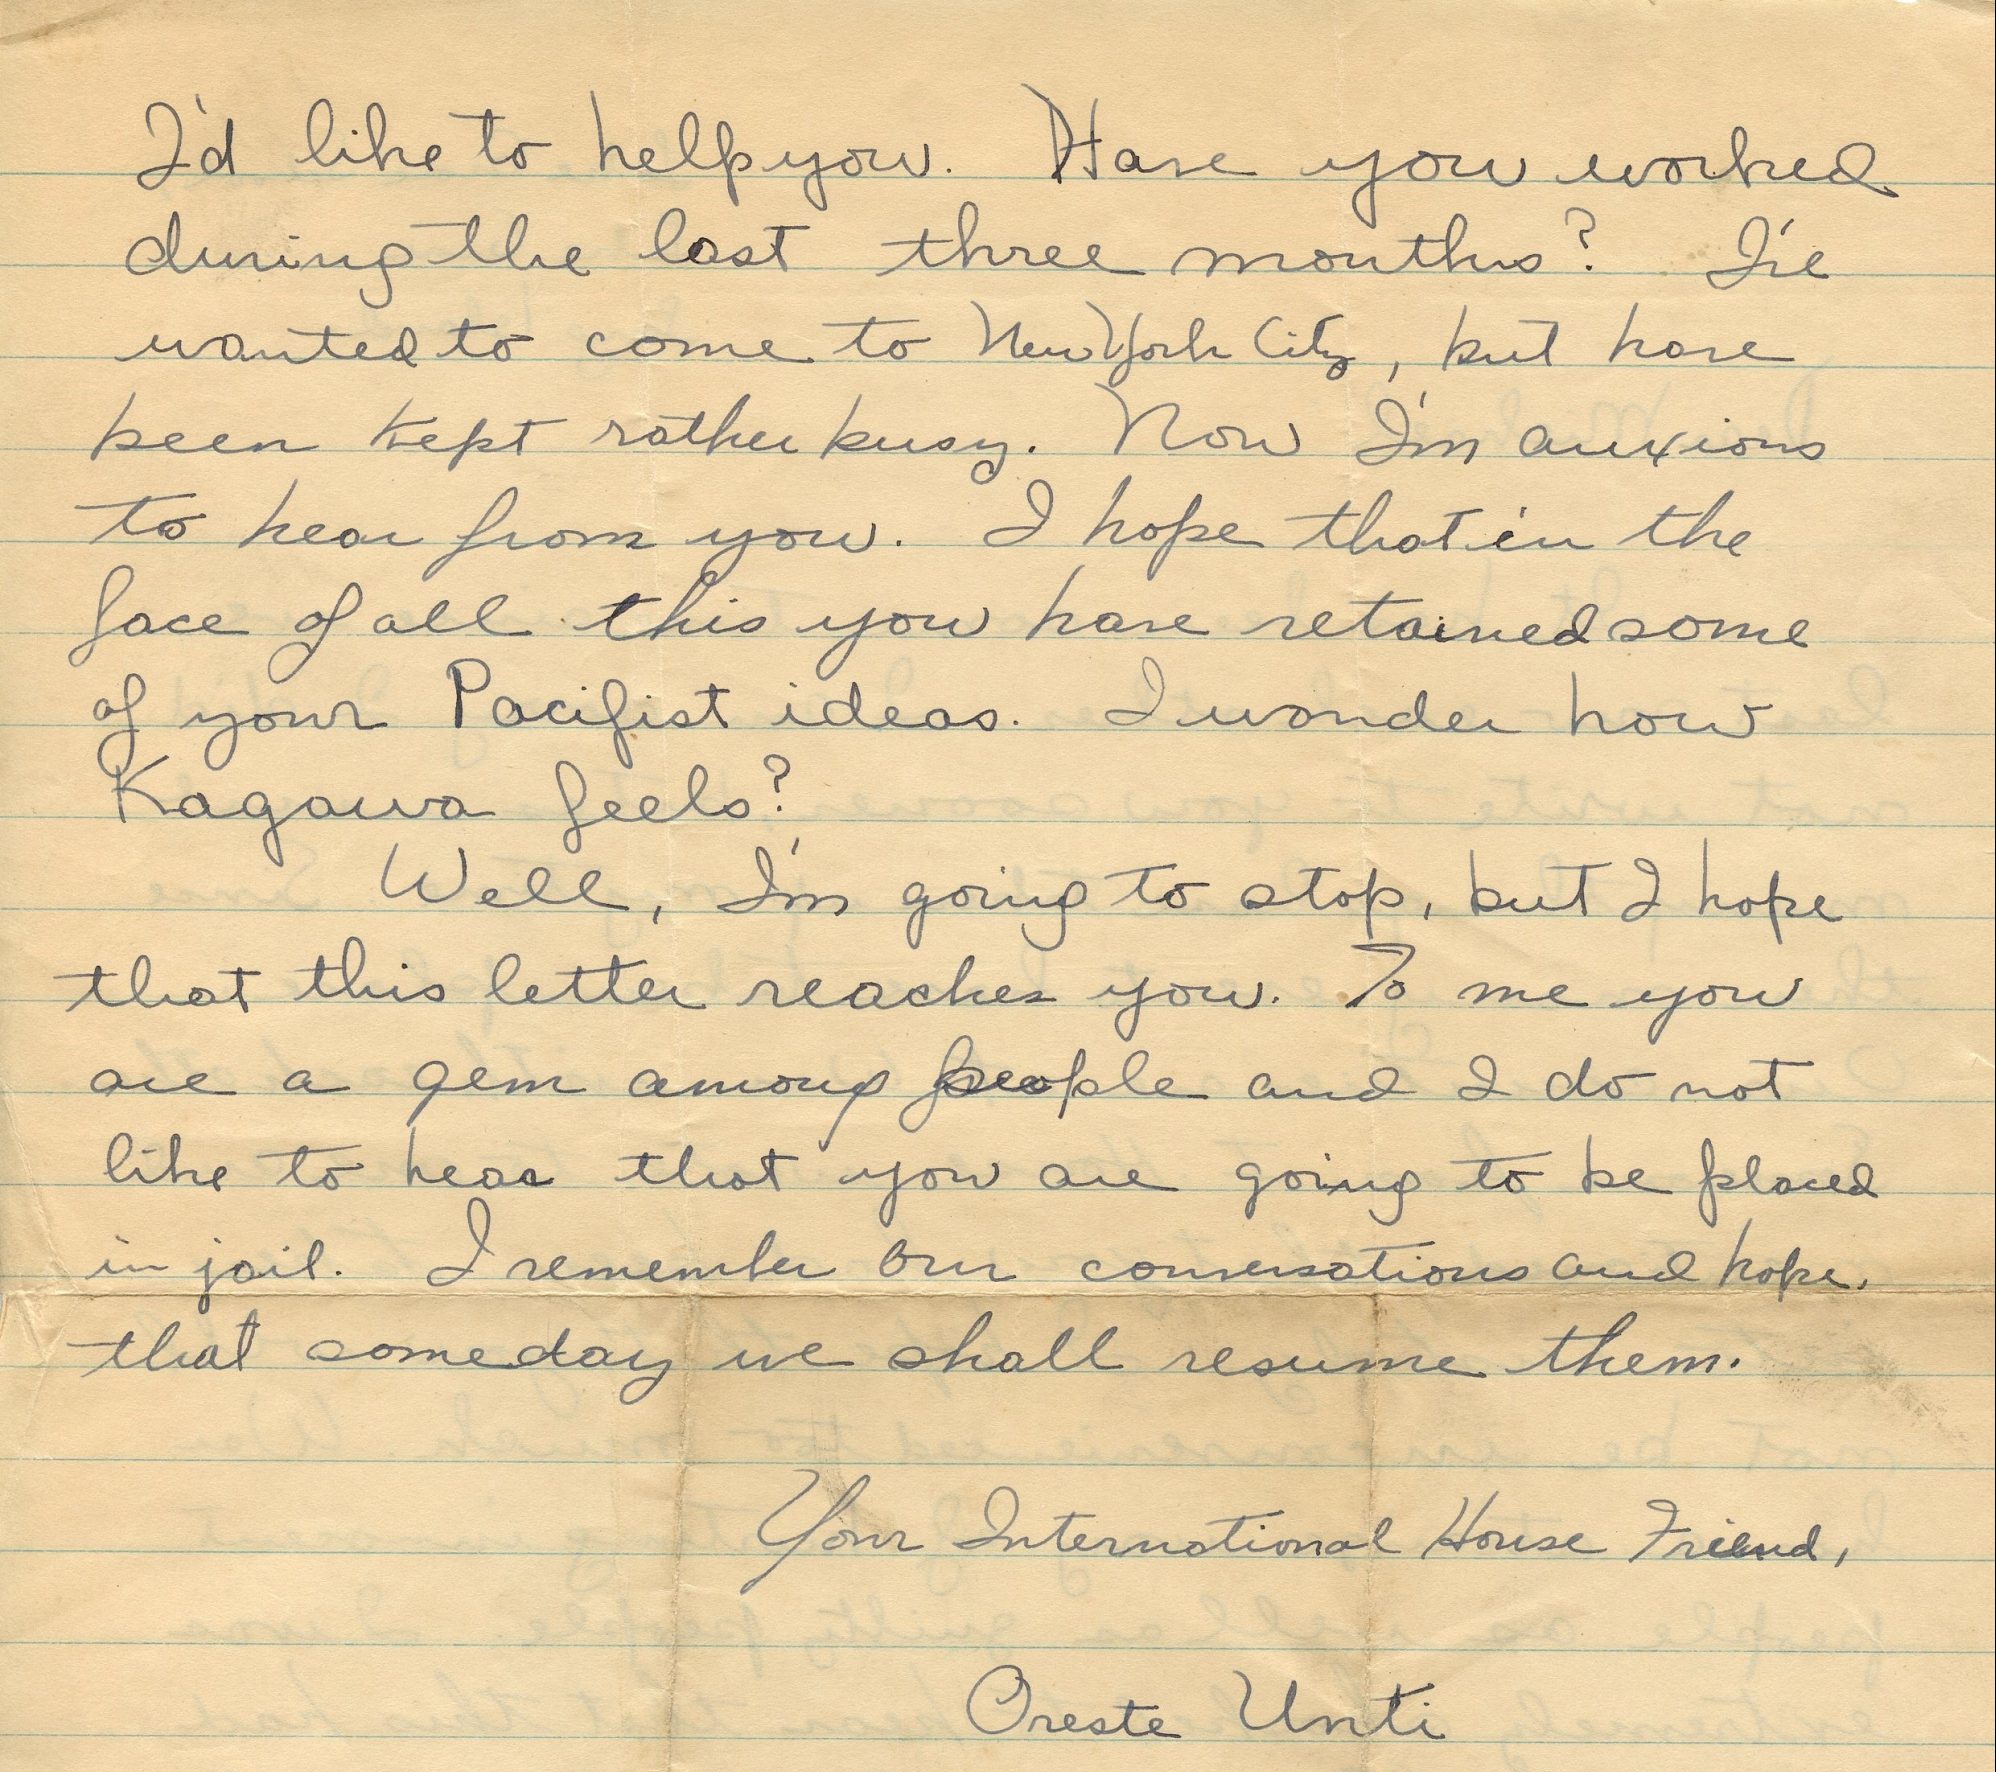 I'd like to help you. Have you worked
during the last three months? I've
wanted to come to New York City, but have
been kept rather busy. Now I'm anxious
to hear from you. I hope that in the
face of all this you have retained some
of your Pacifist ideas. I wonder how
Kagawa feels?
Well, I'm going to stop, but I hope
that this letter reaches you. To me you
are a gem among people and I do not
like to hear that you are going to be placed
in jail. I remember our conversations and hope.
that someday we shall resume them.
Your International House Friend,
Oreste Unti